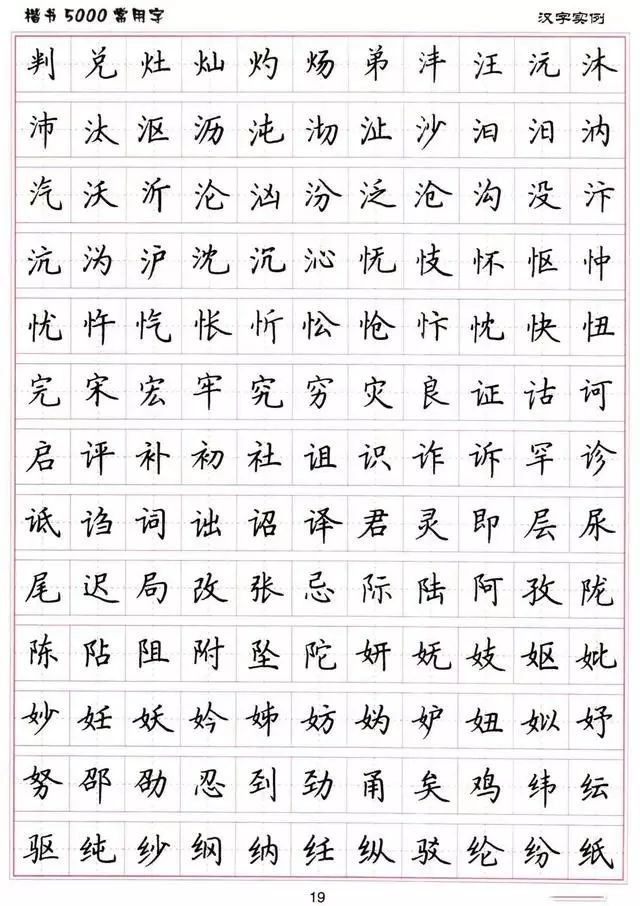 楷书5000常用字 汉字实例
判兑灶灿灼炀弟沣汪沅沐
沛汰沤沥沌沏沚沙汩汨汭
汽沃沂沦汹汾泛沧沟没汴
沆沩沪沈沉沁怃忮怀怄忡
忧忤忾怅忻忪怆忭忱快忸
完宋宏牢究穷灾良证诂诃
启评补初社诅识诈诉罕诊
诋诌词诎诏译君灵即层尿
尾迟局改张忌际陆阿孜陇
陈阽阻附坠陀妍妩妓妪妣
妙妊妖妗姊妨妫妒妞姒妤
努邵劭忍到劲甬矣鸡纬纭
驱纯纱纲纳纴纵驳纶纷纸
19